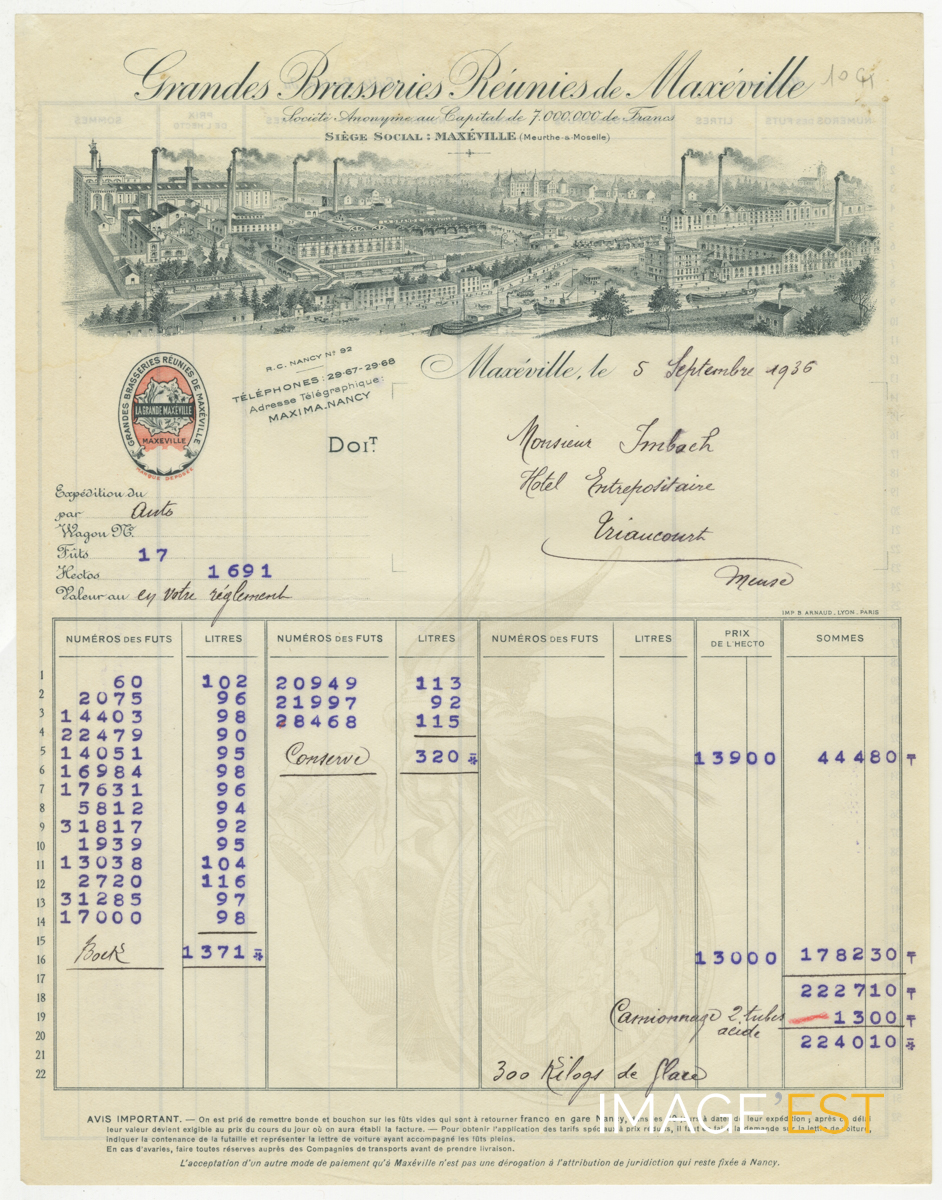 Grandes Brasseries Réunies de Maxéville
Société Anonyme au Capital de 7.000.000 de Francs
SIÈGE SOCIAL : MAXÉVILLE (Meurthe & Moselle)
GRANDES BRASSERIES RÉUNIES DE MAXÉVILLE
LA GRANDE MAXÉVILLE
MAXÉVILLE
MARQUE DÉPOSÉE
R.C. NANCY Nº 92
TÉLÉPHONES : 29-67-29-68
Adresse Télégraphique:
MAXIMA.NANCY
Maxéville, le 5 Septembre 1936
DOIT.
Monsieur Imbach
Hotel Entrepositaire
Triaucourt
Meuse
Expédition du
par Auto
Wagon Nº.
Fûts 17
Hectos 1691
Valeur au en votre réglement
IMP. B. ARNAUD_LYON_PARIS
NUMÉROS DES FUTS LITRES NUMÉROS DES FUTS LITRES NUMÉROS DES FUTS LITRES PRIX DE L'HECTO SOMMES
1 60 102 20949 113
2 2075 96 21997 92
3 14403 98 28468 115
4 22479 90
5 14051 95 Conserve 320 13900 44480
6 16984 98
7 17631 96
8 5812 94
9 31817 92
10 1939 95
11 13038 104
12 2720 116
13 31285 97
14 17000 98
15
16 Bock 1371 13000 178230
17
18 222710
19 Camionnage 2 tubes 1300
20 acide 224010
21
22 300 Kilogs de glace
AVIS IMPORTANT. — On est prié de remettre bonde et bouchon sur les fûts vides qui sont à retourner franco en gare Nancy, dans les jours à dater de leur expédition ; après ce délai
leur valeur devient exigible au prix du cours du jour où on aura établi la facture. — Pour obtenir l'application des tarifs spéciaux à prix réduits, il faut en faire la demande sur la lettre de voiture,
indiquer la contenance de la futaille et représenter la lettre de voiture ayant accompagné les fûts pleins.
En cas d'avaries, faire toutes réserves auprès des Compagnies de transports avant de prendre livraison.
L'acceptation d'un autre mode de paiement qu'à Maxéville n'est pas une dérogation à l'attribution de juridiction qui reste fixée à Nancy.
IMAGE'EST